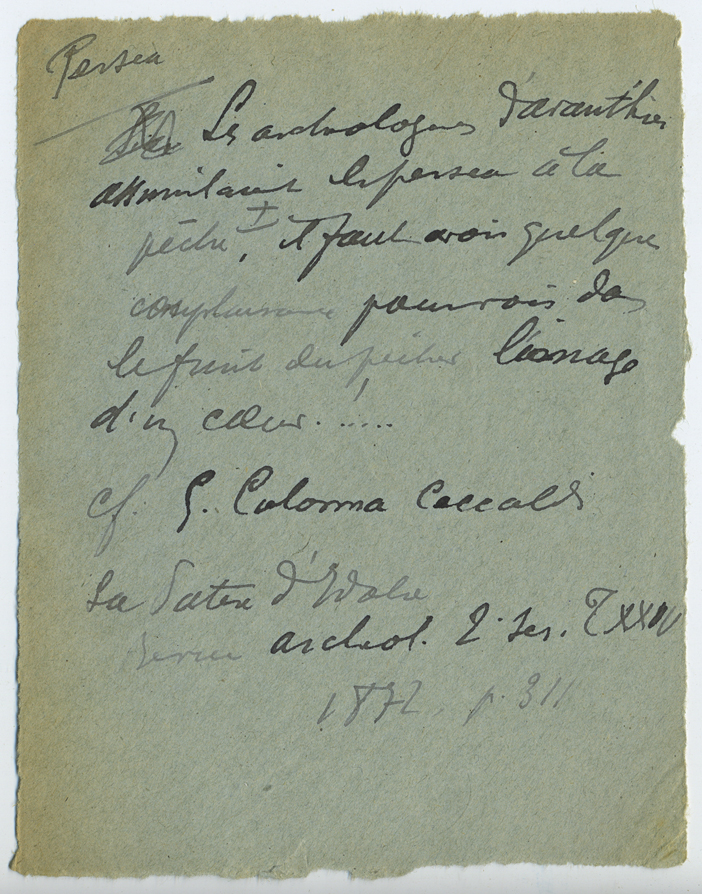 Persea
Les archeologues d'avant-hier
assimilaient le persea à la
pêche ±, il faut avoir quelque
complaisance pour voir dans
le fruit du pêcher l'image
d'un cœur. !....
cf. G. Colonna Ceccaldi
La Patere d'Idalie
Revue archeol. 2e Ser. T XXIV
1872. p. 311